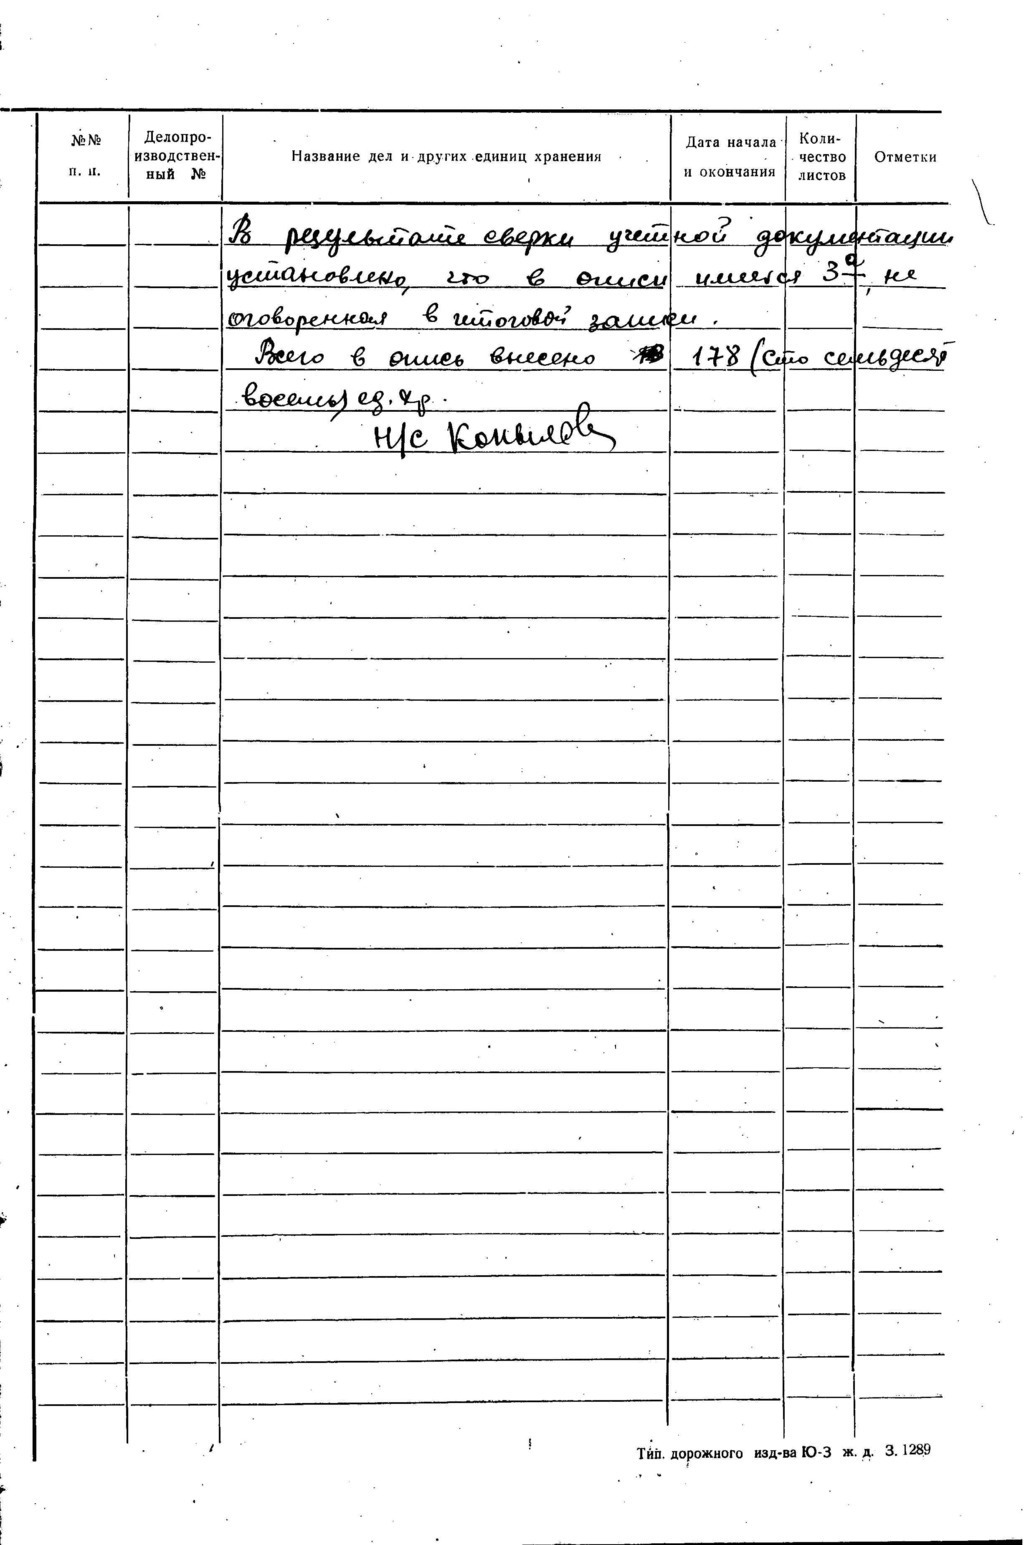 №№ п. п.
Делопро-
изводствен-
ный №
Название дел и других единиц хранения
Дата начала
и окончания
Коли-
чество
листов
Отметки
В результате сверки учетной документации
установлено, что в описи имеется 3а, не
оговоренная в итоговой записи.
Всего в опись внесено 178 (сто семьдесят
восемь) ед. хр.
Н/с Копылова
Тип. дорожного изд-ва Ю-З ж. д. З. 1289